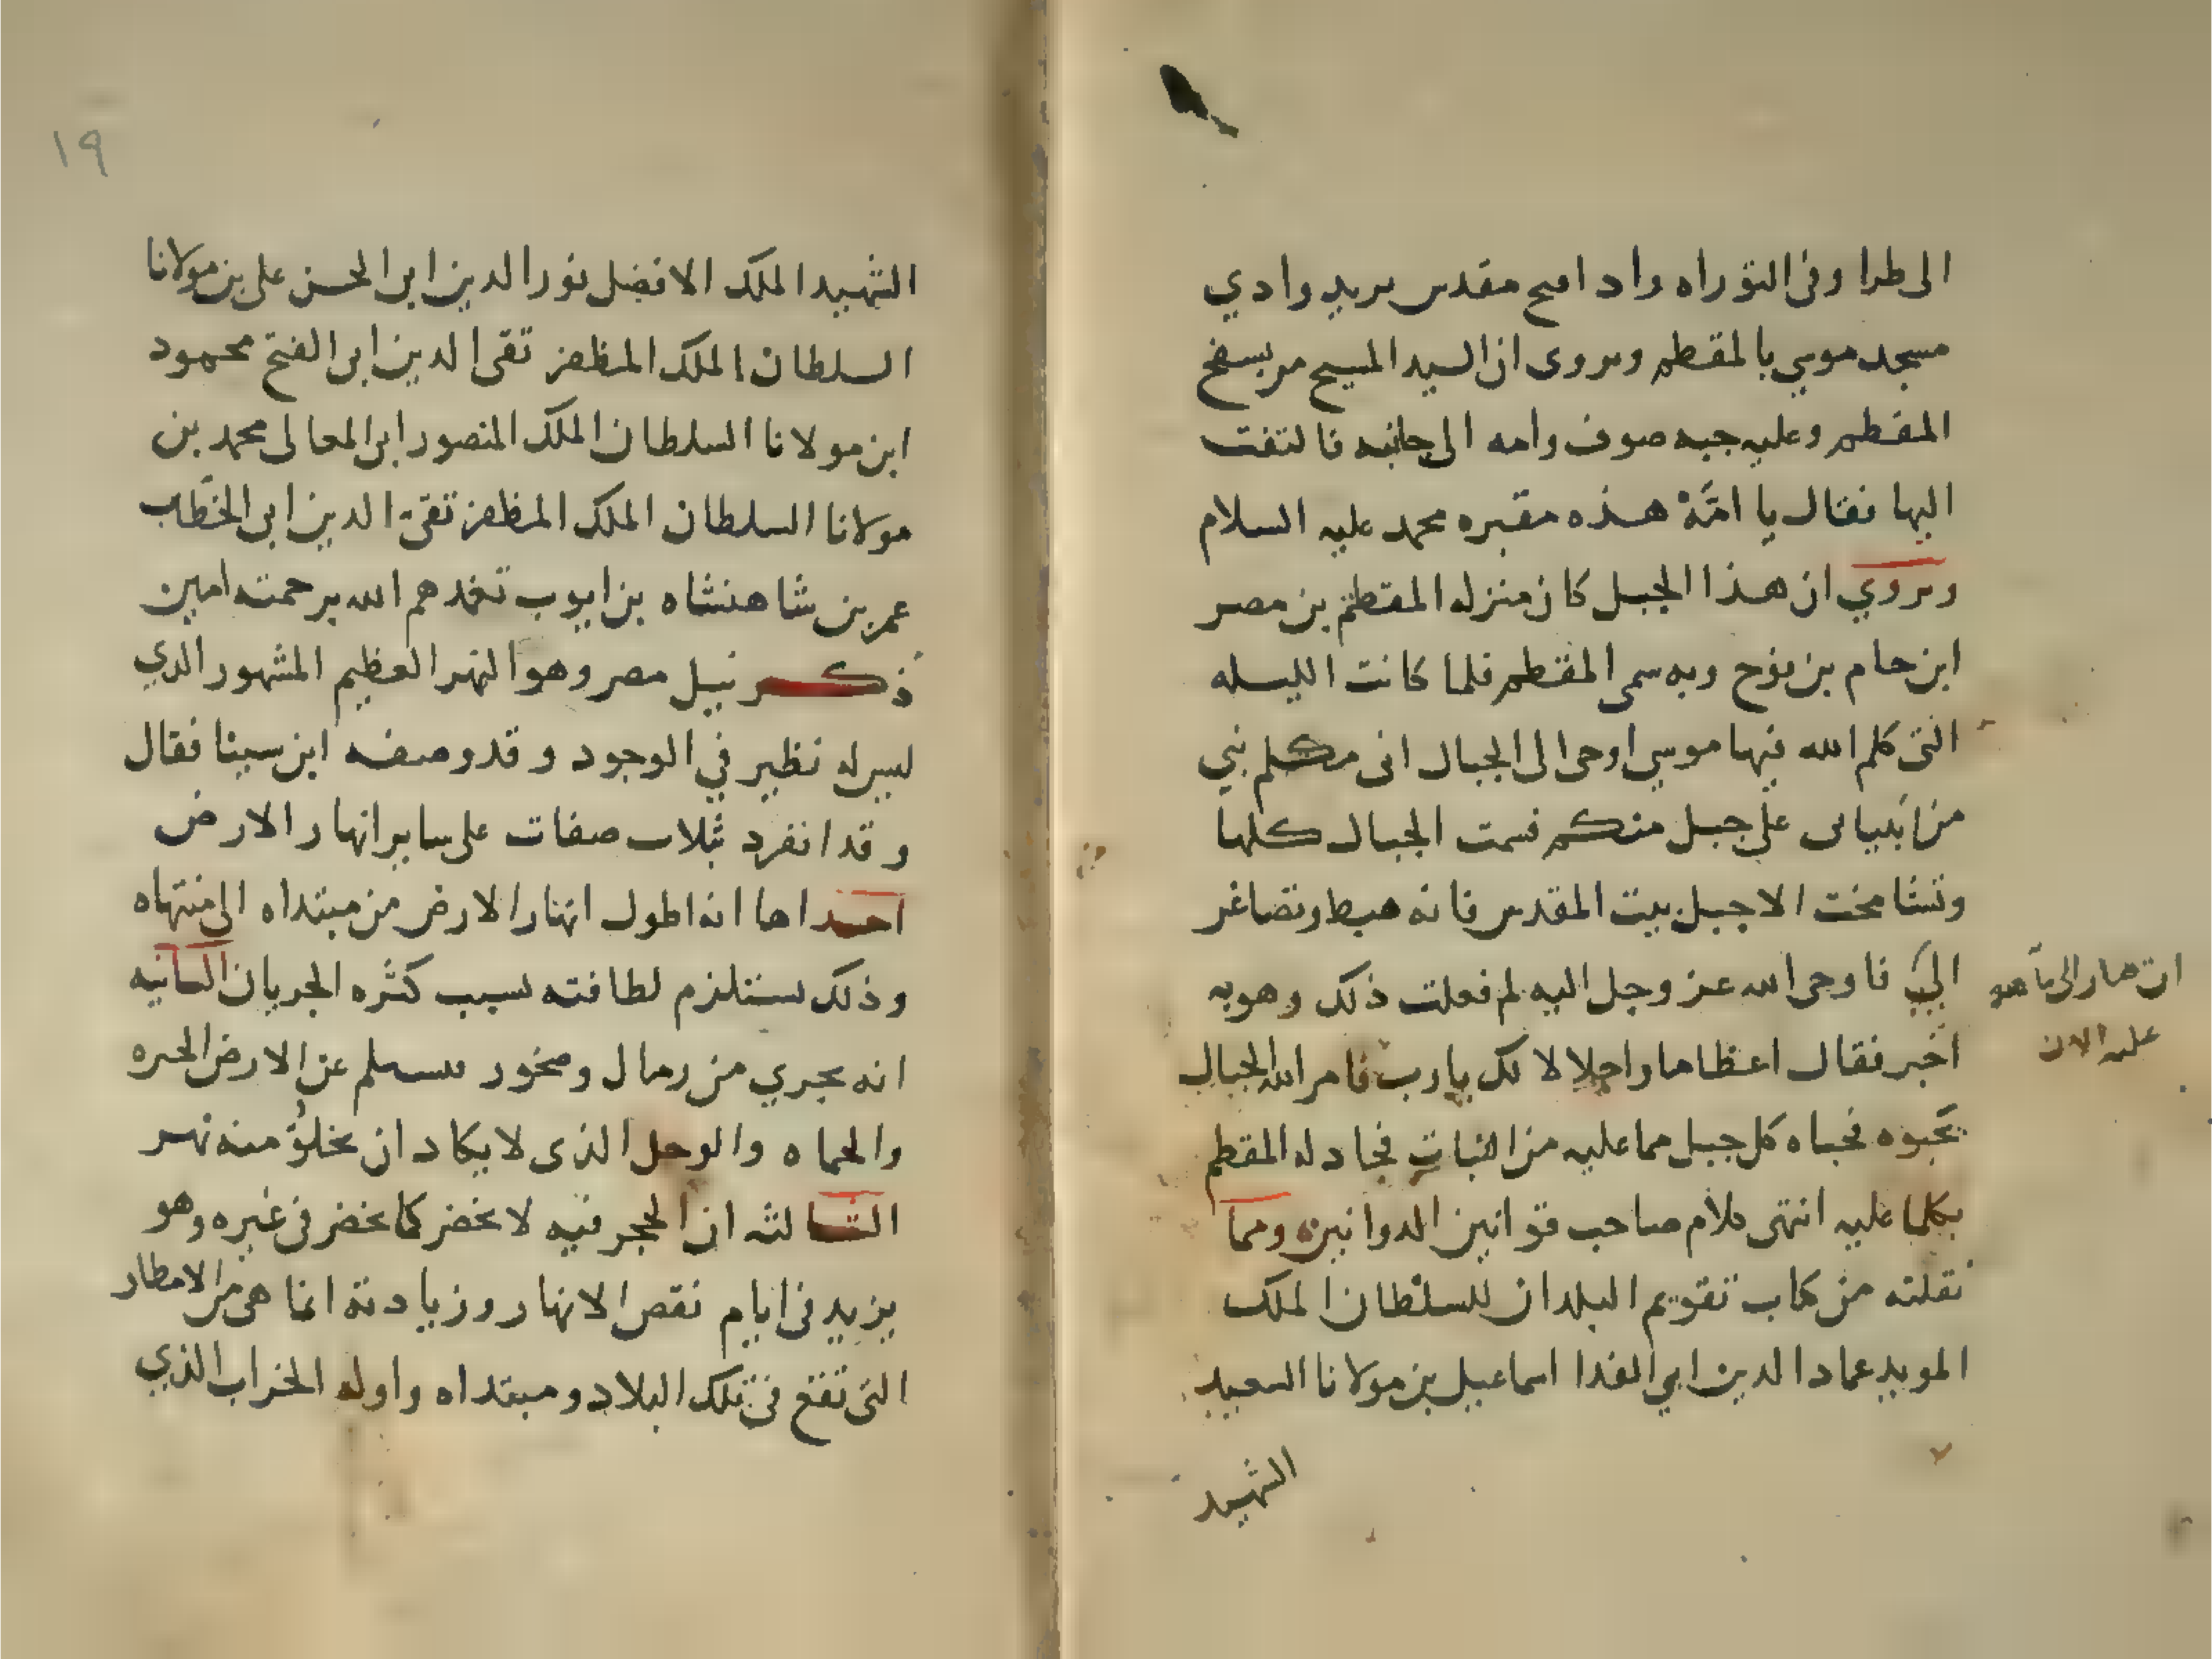 الى طرا وفى التوراه واد امح مقدس يريد وادي
مسجد موسي بالمقطم ويروى ان السيد المسيح مر بسفح
المقطم وعليه جبه صوف وامه الى جانبه فالتفت
اليها فقال يا امَّهْ هذه مقبره محمد عليه السلام
ويروي ان هذا الجبل كان منزله المقطم بن مصر
ابن حام بن نوح وبه سمى المقطم فلما كانت الليله
التى كلم الله فيها موسي اوحى الى الجبال انى مكلم نبي
من انبياى على جبل منكم فسمت الجبال كلها
وتشامخت الا جبل بيت المقدس فانه هبط وتصاغر
اليّ فاوحى الله عز وجل اليه لم فعلت ذلك وهو به
اخبر فقال اعظاما واجلالا لك يارب فامر الله الجبال
يحبوه فحباه كل جبل مما عليه من النبات فجاد له المقطم
بكلما عليه انتهى كلام صاحب قوانين الدوانين ومما
نقلته من كتاب تقويم البلدان للسلطان الملك
المويد عماد الدين ابي الفدا اسماعيل بن مولانا السعيد
الشهيد
ان صار الى ما هو
عليه الان
١٩
الشهيد الملك الافضل نور الدين ابى الحسن على بن مولانا
السلطان الملك المظفر تقى الدين ابى الفتح محمود
ابن مولانا السلطان الملك المنصور ابى المعالى محمد بن
مولانا السلطان الملك المظفر تقى الدين ابى الخطاب
عمر بن شاهنشاه بن ايوب تغمدهم الله برحمته امين
ذكر نيل مصر وهو النهر العظيم المشهور الذي
ليس له نظير في الوجود وقد وصفه ابن سينا فقال
وقد انفرد بثلاث صفات على ساير انهار الارض
احداها انه اطول انهار الارض من مبتداه الى منتهاه
وذلك يستلزم لطافته بسبب كثره الجريان الثانيه
انه يجري من رمال وصخور عن الارض الحره
والحماه والوحل الذى لا يكاد ان يخلو منه نهر
الثالثه ان الحجر فيه لا يخضر كما يخضر فى غيره وهو
يزيد فى ايام نقص الانهار وزيادته انما هى من الامطار
التى تقع فى تلك البلاد ومبتداه واوله الخراب الذي